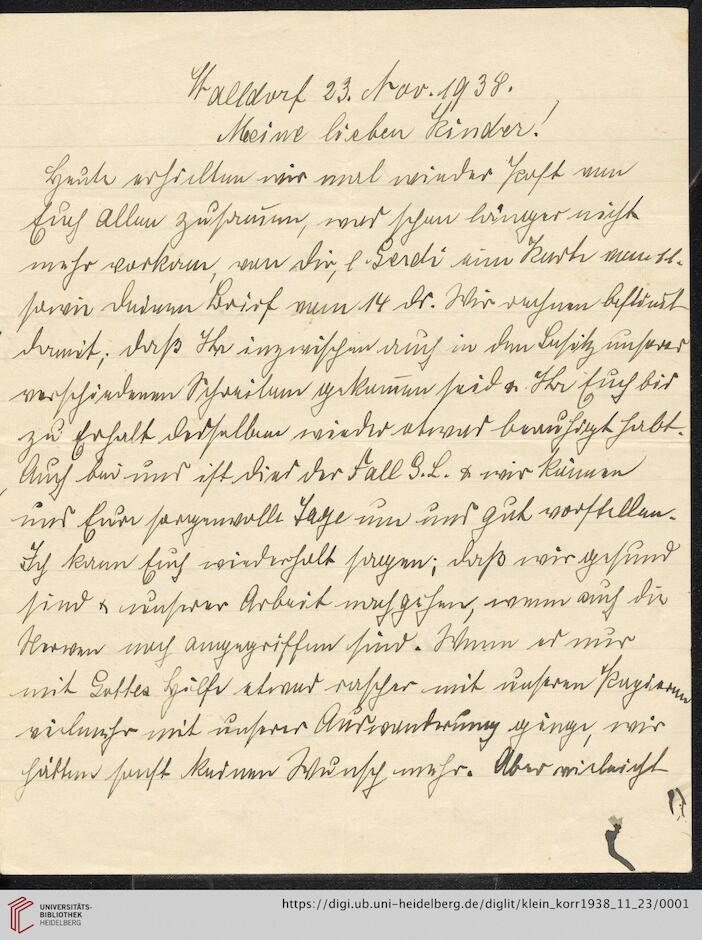 Walldorf 23. Nov. 1938.
Meine lieben Kinder!
Heute erhielten wir mal wieder Post von
Euch allen zusam̅en, was schon länger nicht
mehr vorkam, von Dir, l. Gerdi eine Karte vom 11.
sowie Deinen Brief vom 14 ds. Wir rechnen bestim̅t
damit, daß Ihr inzwischen auch in den Besitz unserer
verschiedenen Schreiben gekom̅en seid u. Ihr Euch bis
zu Erhalt desselben wieder etwas beruhigt habt.
Auch bei uns ist dies der Fall G.L. & wir können
uns Eure sorgenvolle Tage um uns gut vorstellen.
Ich kann Euch wiederholt sagen; daß wir gesund
sind & unserer Arbeit nachgehen, wenn auch die
Nerven noch angegriffen sind. Wenn es nur
mit Gottes Hilfe etwas rascher mit unseren Papieren
vielmehr mit unserer Auswanderung ginge, wir
hätten sonst keinen Wunsch mehr. Aber vieleicht
1)
UNIVERSITÄTS-
BIBLIOTHEK
HEIDELBERG
https://digi.ub.uni-heidelberg.de/diglit/klein_korr1938_11_23/0001